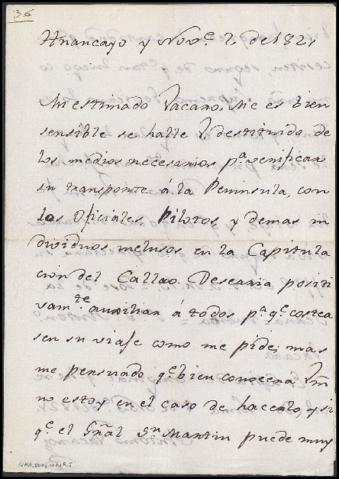 36
Huancayo y Nov.e 2 de 1821
Mi estimado Vacaro. Me es bien
sensible se halle V. destituido de
los medios necesarios p.a verificar
su transporte á la Peninsula, con
los Oficiales, Pilotos y demas in
dividuos inclusos en la Capitula
cion del Callao. Desearia positi
vam.te auxiliar á todos p.a q.e costea
sen su viaje como me pide; mas
me persuado q.e bien conocera Vm
no estoy en el caso de hacerlo, y si
q.e el Gral S.n Martin puede muy